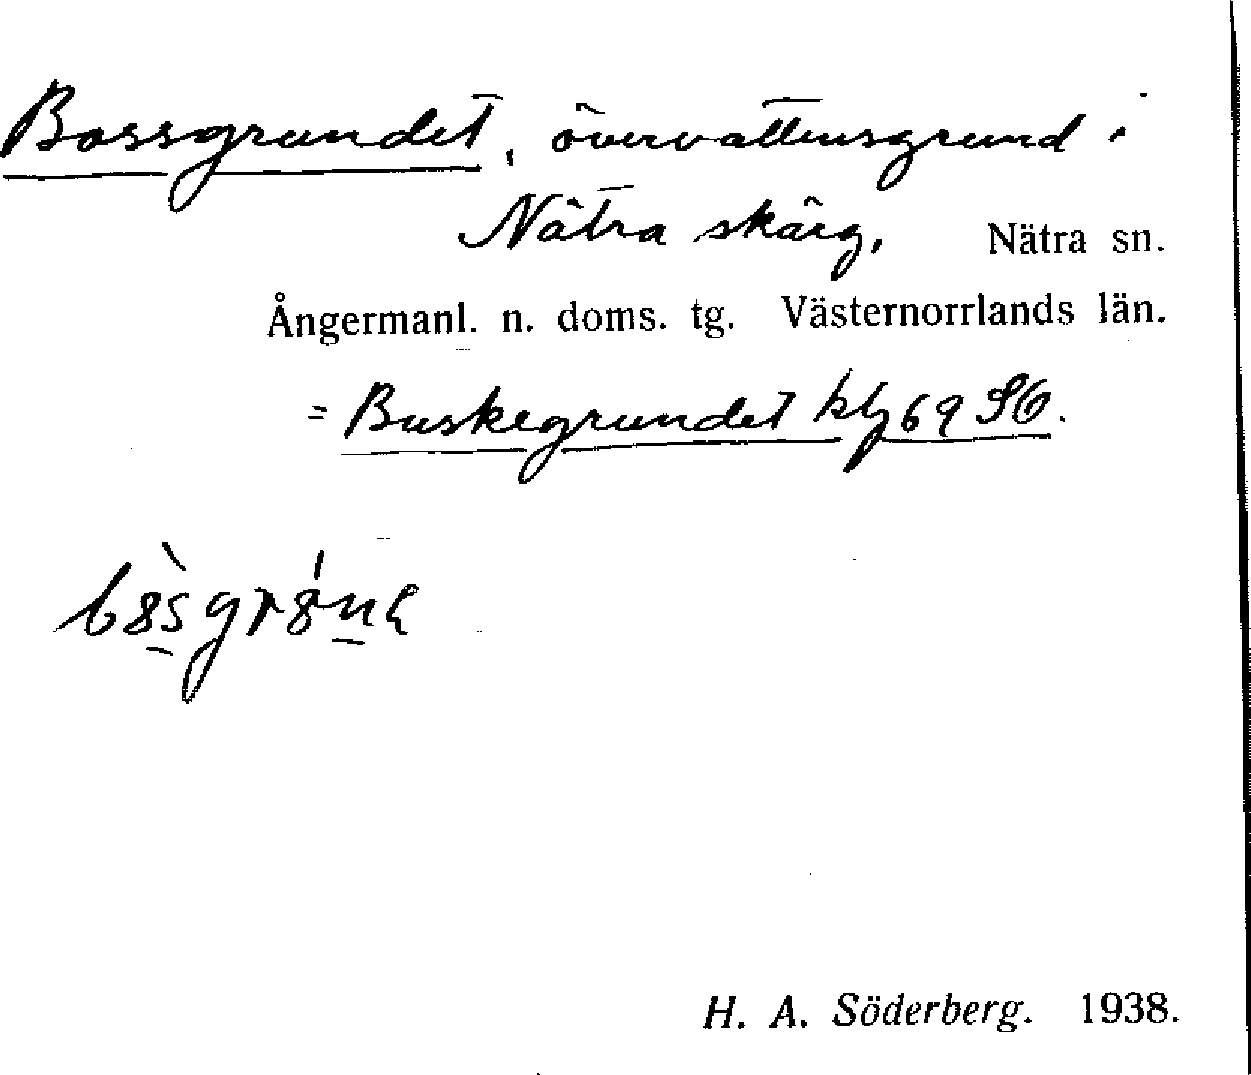 Bossgrundet, övervattensgrund i
Nätra skärg, Nätra sn.
Ångermanl. n. doms. tg. Västernorrlands län.
= Buskegrundet kbl 69 SO.
H. A. Söderberg. 1938.